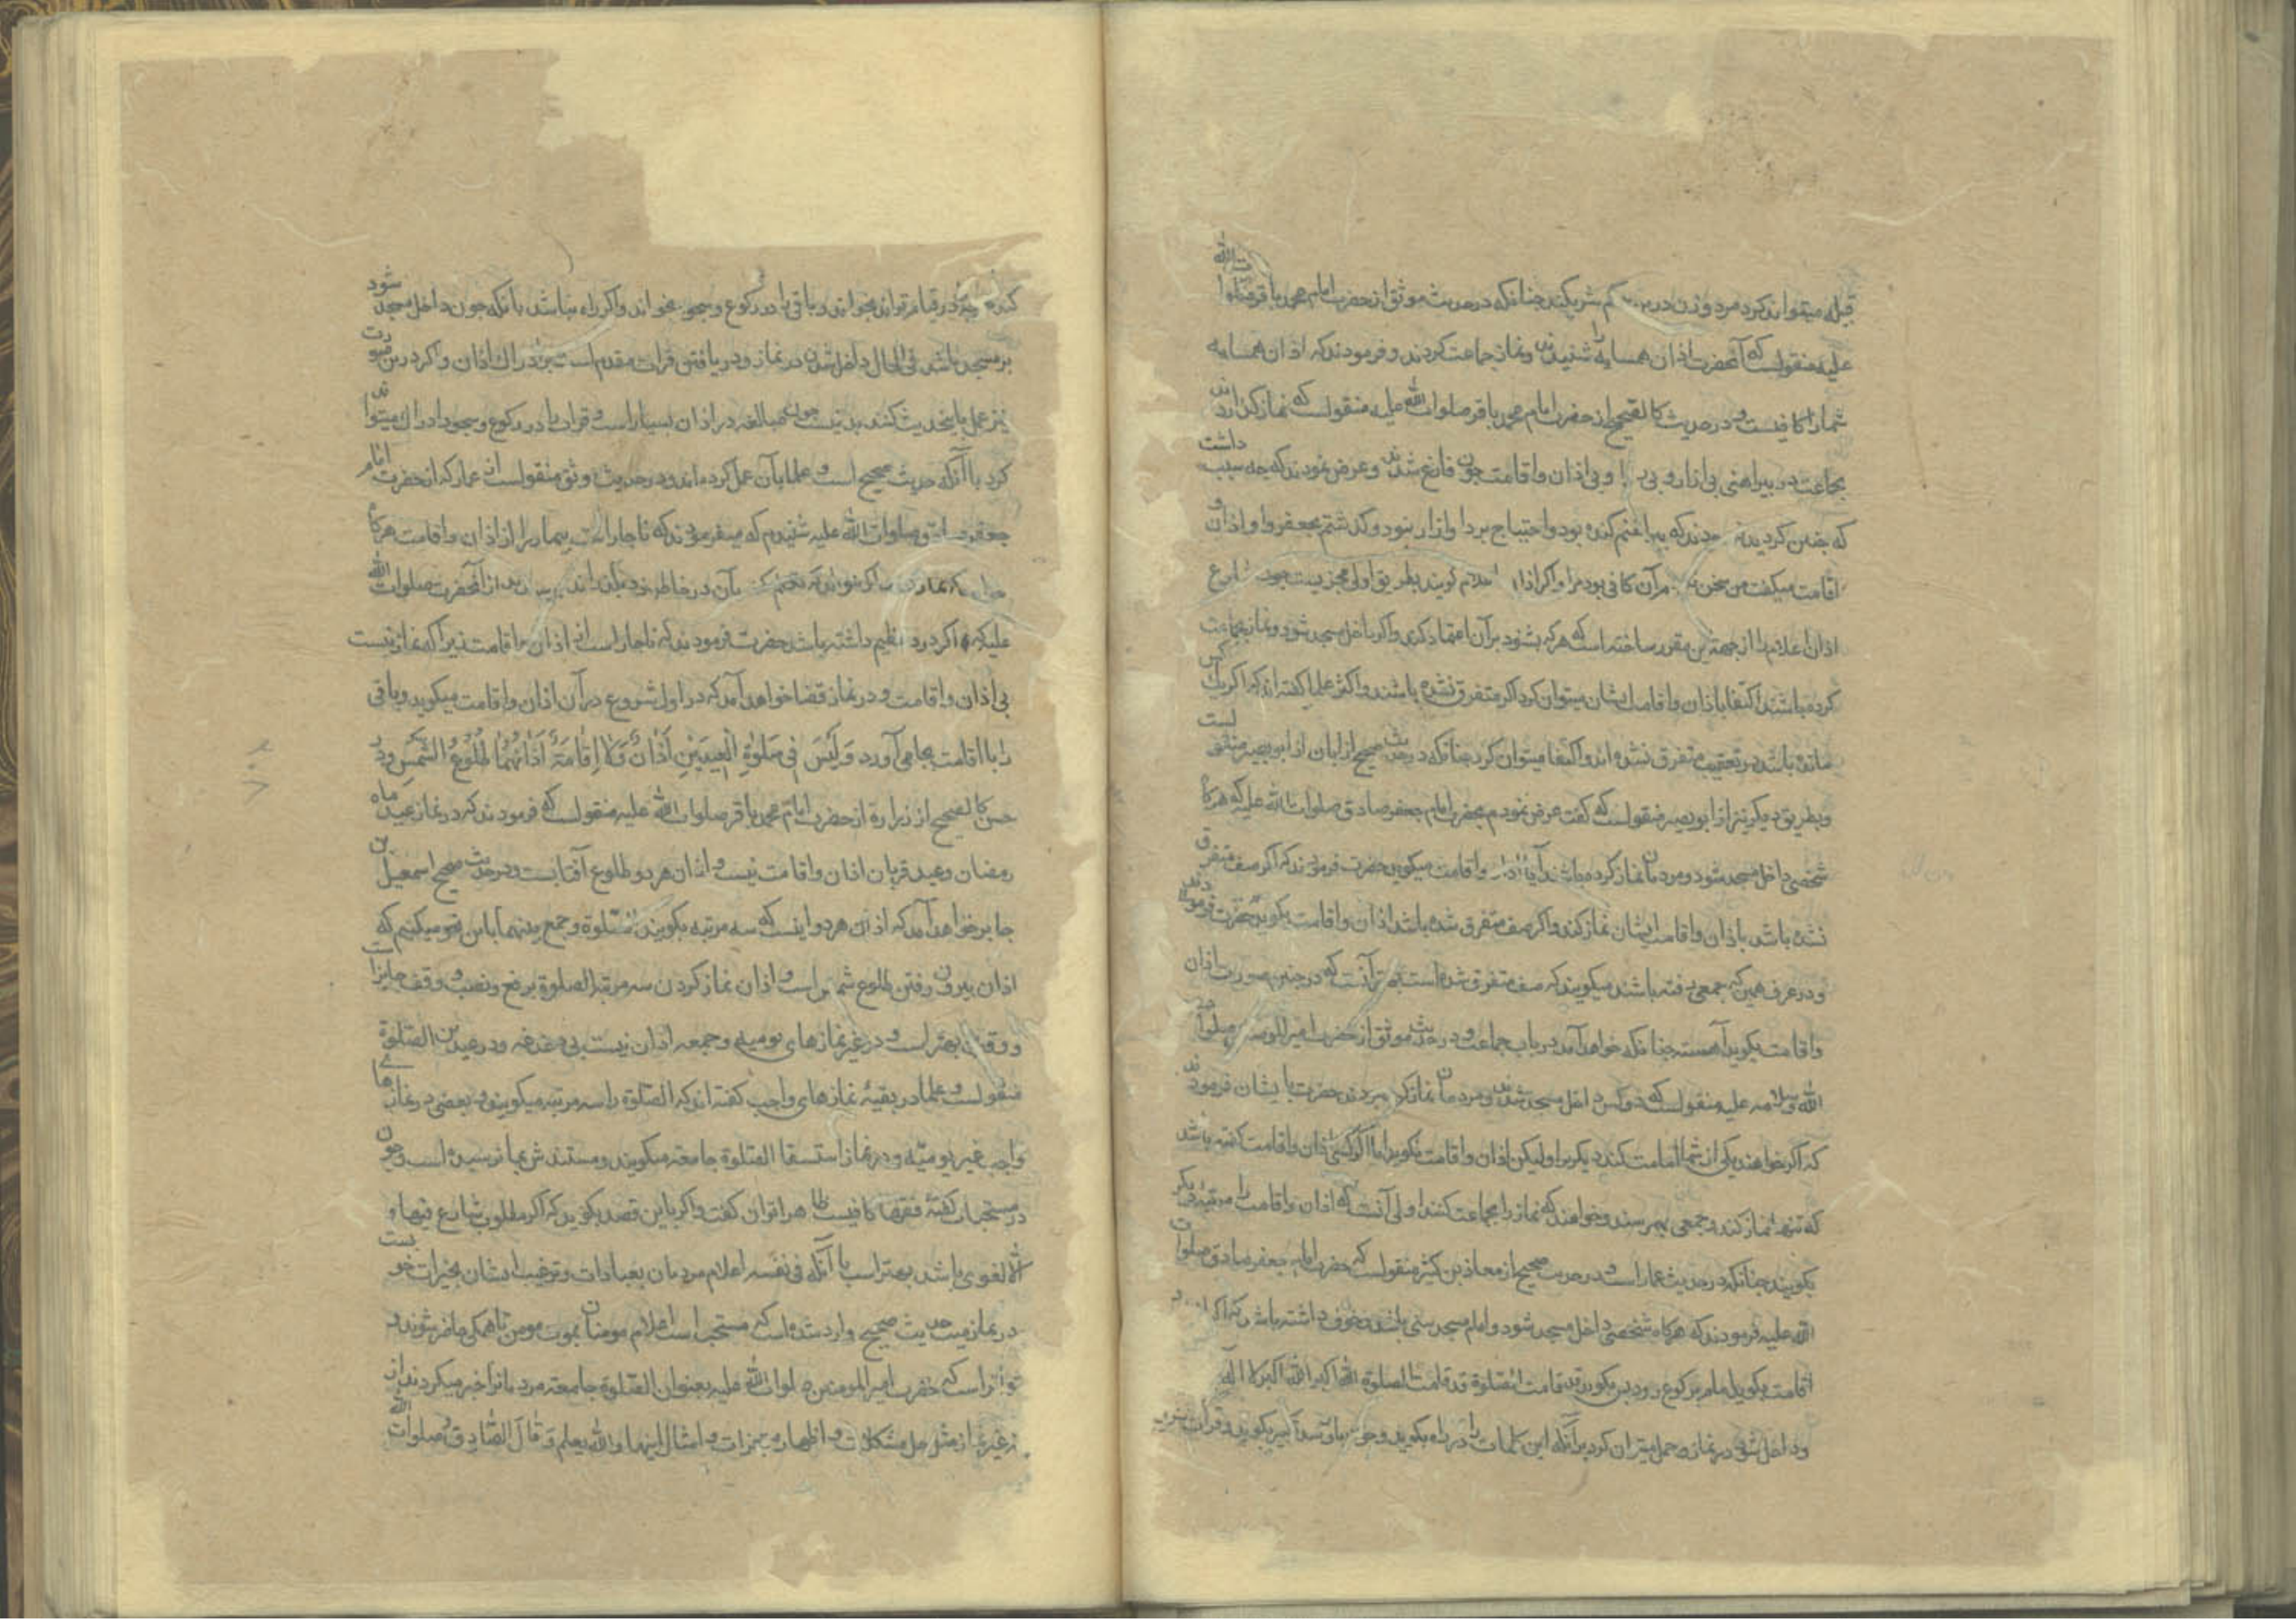 قبله میتواند کرد مرد و زن در کم شریکند چنانکه در حدیث موثق از حضرت امام محمد باقر صلوات الله
علیه منقولست که آنحضرت اذان همسایه را شنیدند و نماز جماعت کردند و فرمودند که اذان همسایه
شما را کافیست و در حدیث کالصحیح از حضرت امام محمد باقر صلوات الله علیه منقولست که نماز کزاردند
بجماعت در پیراهنی بی ازار و بی ردا و بی اذان و اقامت چون فارغ شدند و عرض نمودند که چه سبب داشت
که چنین کردید فرمودند که پیراهنم کنده بود و احتیاج بردا و ازار نبود و کذشتم بجعفر و او اذان و
اقامت میکفت من سخن نکفتم آن کافی بود مرا و اکر اذان اعلام کویند بطریق اولی مجزیست چون شارع
اذان اعلام را از جهة این مقرر ساخته است که هر که بشنود بر آن اعتماد کرده و اکر داخل مسجد شود و نماز جماعت
کرده باشند اکتفا باذان و اقامت ایشان میتوان کرد اکر متفرق نشده باشند و اکثر علما کفته اند که اکر یک کس
مانده باشد در تعقیب متفرق نشده اند و اکتفا میتوان کرد چنانکه در حدیث صحیح از ابان از ابو بصیر منقولست
و بطریق دیکر نیز از ابو بصیر منقولست که کفت عرض نمودم بحضرت امام جعفر صادق صلوات الله علیه که هرکاه
شخصی داخل مسجد شود و مردمان نماز کرده باشند آیا اذان و اقامت میکوید حضرت فرمودند که اکر صف متفرق
نشده باشد باذان و اقامت ایشان نماز کند و اکر صف متفرق شده باشد اذان و اقامت بکوید حضرت فرمودند
و در عرف همین که جمعی رفته باشند میکویند که صف متفرق شده است بهتر آنست که در چنین صورت اذان
و اقامت بکوید آهسته چنانکه خواهد آمد در باب جماعت و در حدیث موثق از حضرت امیر المومنین صلوات
الله و سلامه علیه منقولست که دو کس داخل مسجد شدند و مردمان نماز کرده بودند حضرت بایشان فرمودند
که اکر خواهند یکی از شما امامت کند دیکریرا و لیکن اذان و اقامت نکوید اما اکر کسی اذان و اقامت کفته باشد
که تنها نماز کند و جمعی بهم رسند و خواهند که نماز را بجماعت کنند اولی آنست که اذان و اقامت را مرتبه دیکر
بکویند چنانکه در حدیث عمار است و در حدیث صحیح از معاذ بن کثیر منقولست که حضرت امام جعفر صادق صلوات
الله علیه فرمودند که هرکاه شخصی داخل مسجد شود و امام مسجد سنی باشد و خوف داشته باشد که اکر اذان و
اقامت بکوید امام برکوع رود پس بکوید قد قامت الصلوة قد قامت الصلوة الله اکبر الله اکبر لا اله
و داخل شود در نماز و حمل میتوان کرد بر آنکه این کلمات را در راه بکوید و چون باو رسد تکبیر بکوید و قرات
کند در قیام تواند بخواند و باقی را در رکوع و سجود بخواند و اکر راه نباشد با آنکه چون داخل مسجد شود
بر مسجد باشد فی الحال داخل شدن در نماز و دریافتن قرات مقدم است بر ادراک اذان و اکر درین صورت
نیز عمل باین حدیث کنند بد نیست چون مبالغه در اذان بسیار است و قرات را در رکوع و سجود ادراک میتواند
کرد با آنکه حدیث صحیح است و علما بآن عمل کرده اند و در حدیث موثق منقولست از عمار که از حضرت امام
جعفر صادق صلوات الله علیه شنیدم که میفرمودند که ناچار است بیمار را از اذان و اقامت هرکاه
خواهد که نماز کند اکر نتواند که تکلم کند بآن در خاطر خود بکذراند پرسیدند از آنحضرت صلوات الله
علیه که اکر درد عظیم داشته باشد حضرت فرمودند که ناچار است از اذان و اقامت زیرا که نماز نیست
بی اذان و اقامت و در نماز قضا خواهد آمد که در اول شروع در آن اذان و اقامت میکوید و باقی
را با اقامت بجا می آورد وَ لَیْسَ فِی صَلٰوةِ الْعِیدَیْنِ اَذَانٌ وَ لَا اِقَامَةٌ اَذَانُهُمَا طُلُوعُ الشَّمْسِ و در
حسن کالصحیح از زراره از حضرت امام محمد باقر صلوات الله علیه منقولست که فرمودند که در نماز عید ماه
رمضان و عید قربان اذان و اقامت نیست و اذان هر دو طلوع آفتابست و در حدیث صحیح اسمعیل بن
جابر خواهد آمد که اذان هر دو اینست که سه مرتبه بکویند الصلوة و جمع بینهما باین نحو میکنیم که
اذان بیرون رفتن طلوع شمس است و اذان نماز کردن سه مرتبه الصلوة برفع و نصب و وقف جایز است
و وقف بهتر است و در غیر نمازهای یومیه و جمعه اذان نیست بی دغدغه و در عیدین الصلوة
منقولست و علما در بقیهٔ نمازهای واجب کفته اند که الصلوة را سه مرتبه میکویند و بعضی در نمازهای
واجب غیر یومیه و در نماز استسقا الصلوة جامعة میکویند و مستندش بما نرسیده است و چون
در مستحبات کفتهٔ فقها کافیست ظاهرا توان کفت و اکر باین قصد بکوید که اکر مطلوب شارع فبها و
الا لغوی باشد بهتر است با آنکه فی نفسه اعلام مردمان بعبادات و ترغیب ایشان بخیرات خوبست
در نماز میت حدیث صحیح وارد شده است که مستحب است اعلام مومنان بموت مومن تا همکی حاضر شوند و
متواتر است که حضرت امیر المومنین صلوات الله علیه بعنوان الصلوة جامعة مردمانرا خبر میکردند از
غیر نماز مثل حل مشکلات و اظهار معجزات و امثال اینها و الله یعلم وَ قَالَ الصَّادِقُ صلوات الله